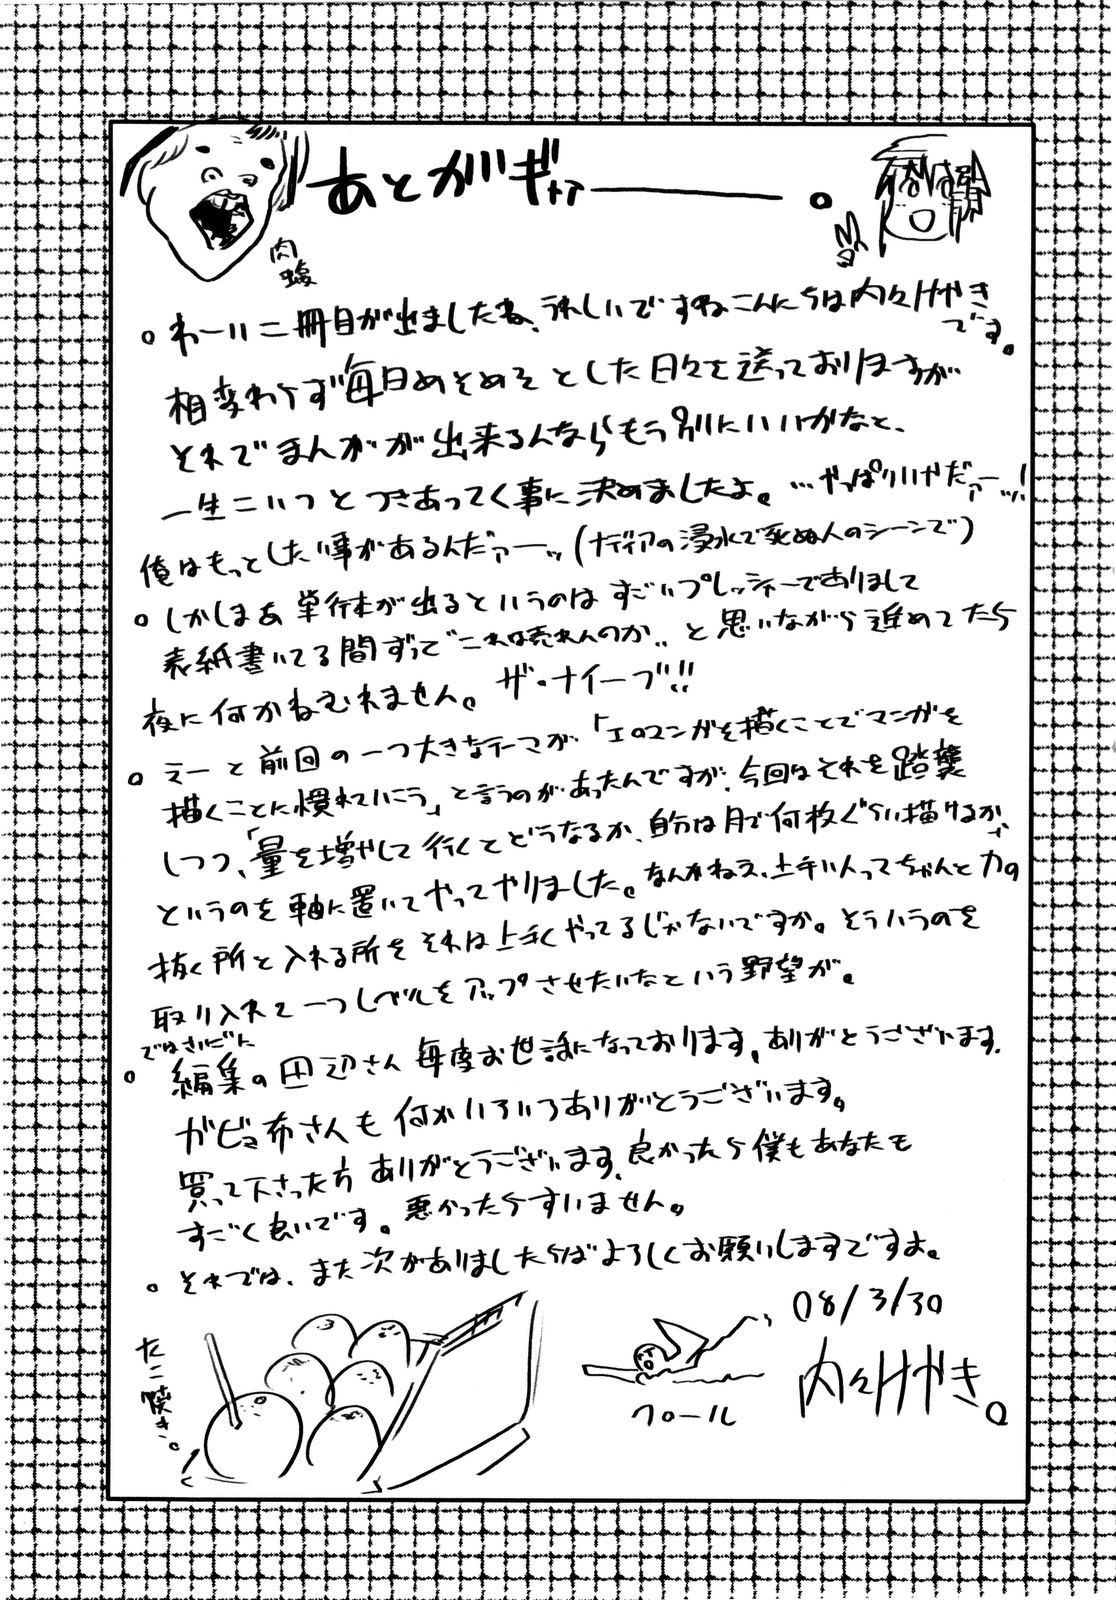 あとがギャァーーー。
肉
わーい二冊目が出ましたね、うれしいですねこんにちは内々けやき
です。
相変わらず毎日めそめそとした日々を送っておりますが
それでまんがが出来るんならもう別にいいかなと、
一生こいつとつきあってく事に決めましたよ。…やっぱりいやだァーッ!
俺はもっとしたい事があるんだァーッ(ナディアの浸水で死ぬ人のシーンで)
しかしまあ単行本が出るというのはすごいプレッシャーでありまして
表紙書いてる間ずっで"これは売れんのか"と思いながら進めてたら
夜に何かねむれません。ザ・ナイーブ!!
えーと前回の一つ大きなテーマが「エロマンガを描くことでマンガを
描くことに慣れていこう」と言うのがあったんですが、今回はそれを踏襲
しつつ、「量を増やして行くとどうなるか、自分は月で何枚ぐらい描けるか」
というのを軸に置いてやってやりました。なんかねえ、上手い人ってちゃんと力の
抜く所と入れる所をそれは上手くやってるじゃないですか。そういうのを
取り入れて一つレベルをアップさせたいなという野望が。
ではさいごに
編集の田辺さん毎度お世話になっております。ありがとうございます。
ガビョ布さんも何かいろいろありがとうございます。
買って下さった方ありがとうございます、良かったら僕もあなたも
すごく良いです。悪かったらすいません。
それでは、また次がありましたらばよろしくお願いしますですよ。
08/3/30
たこ焼き。
クロール
内々けやき。